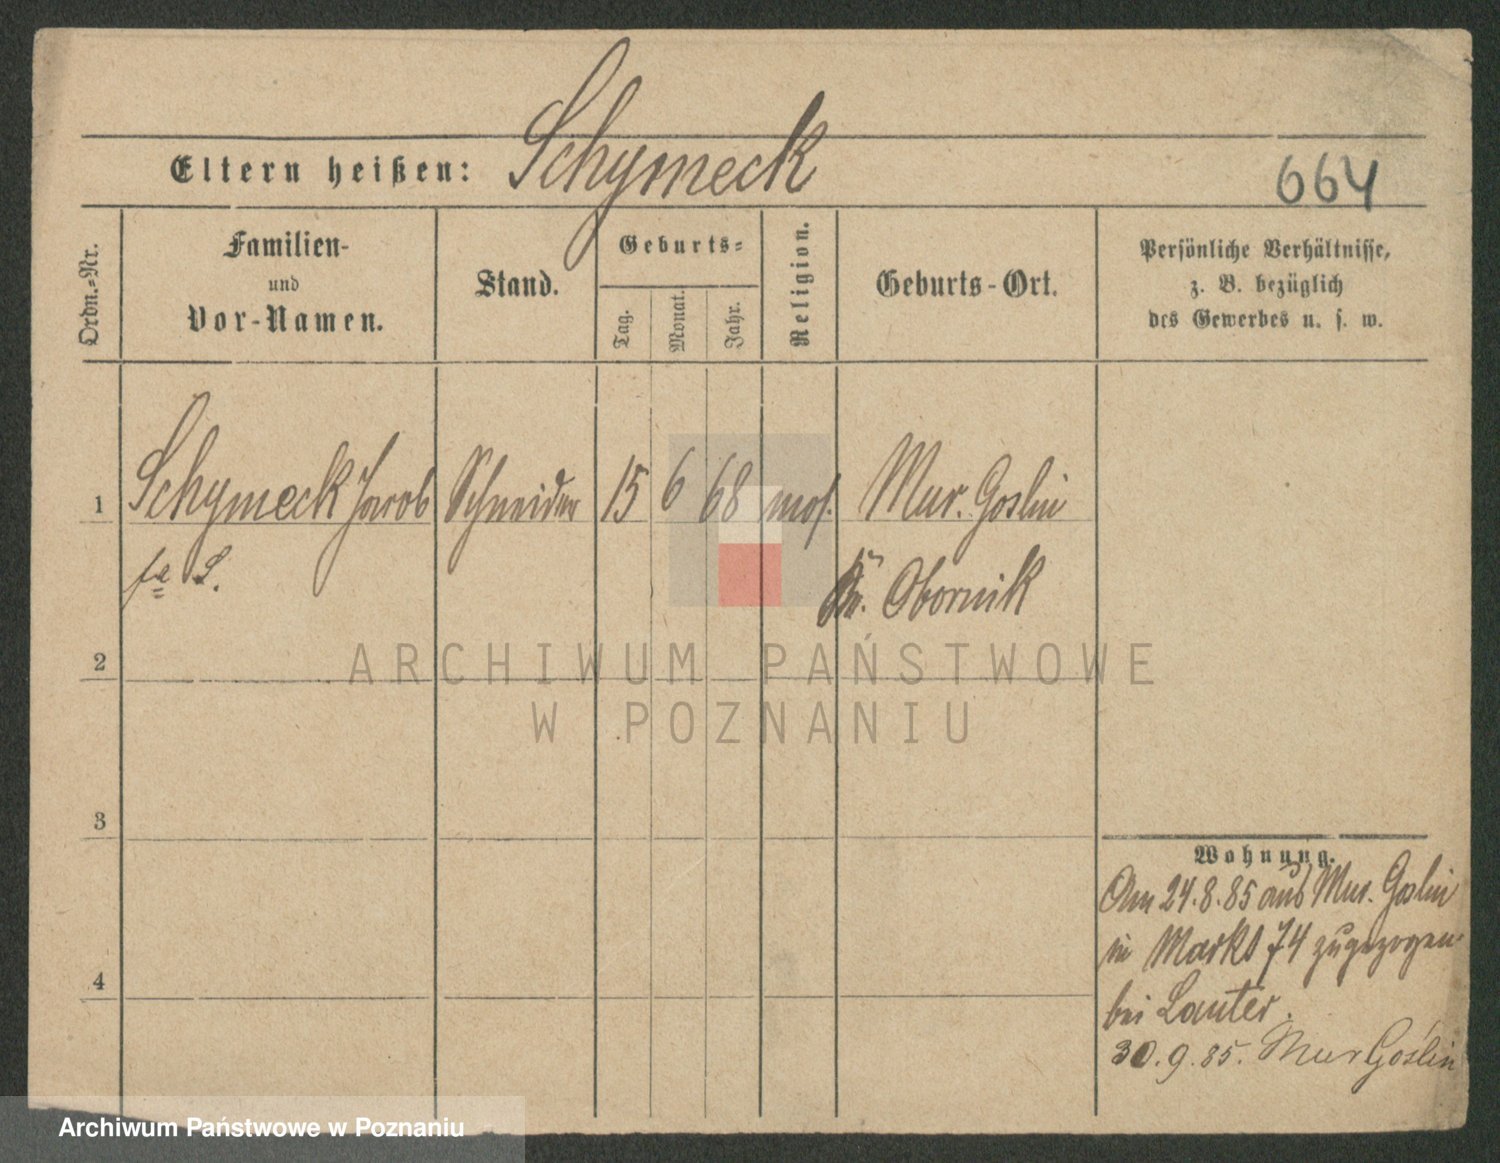 Schymeck
Eltern heißen:
664
Ordn.-Nr.
Familien-
und
Vor-Namen.
Stand.
Geburts-
Tag.
Monat.
Jahr.
Religion.
Geburts-Ort.
Persönliche Verhältnisse,
z. B. bezüglich
des Gewerbes u. s. w.
1 Schymeck Jacob Schneider 15 6 68 mos. Mur. Goslin
Kr. Obornik
2
3
4
Wohnung.
Am 24.8.85 aus Mur. Goslin
in Markt 74 zugezogen
bei Lauter.
30.9.85. Mur Goślin
ARCHIWUM PAŃSTWOWE
W POZNANIU
Archiwum Państwowe w Poznaniu